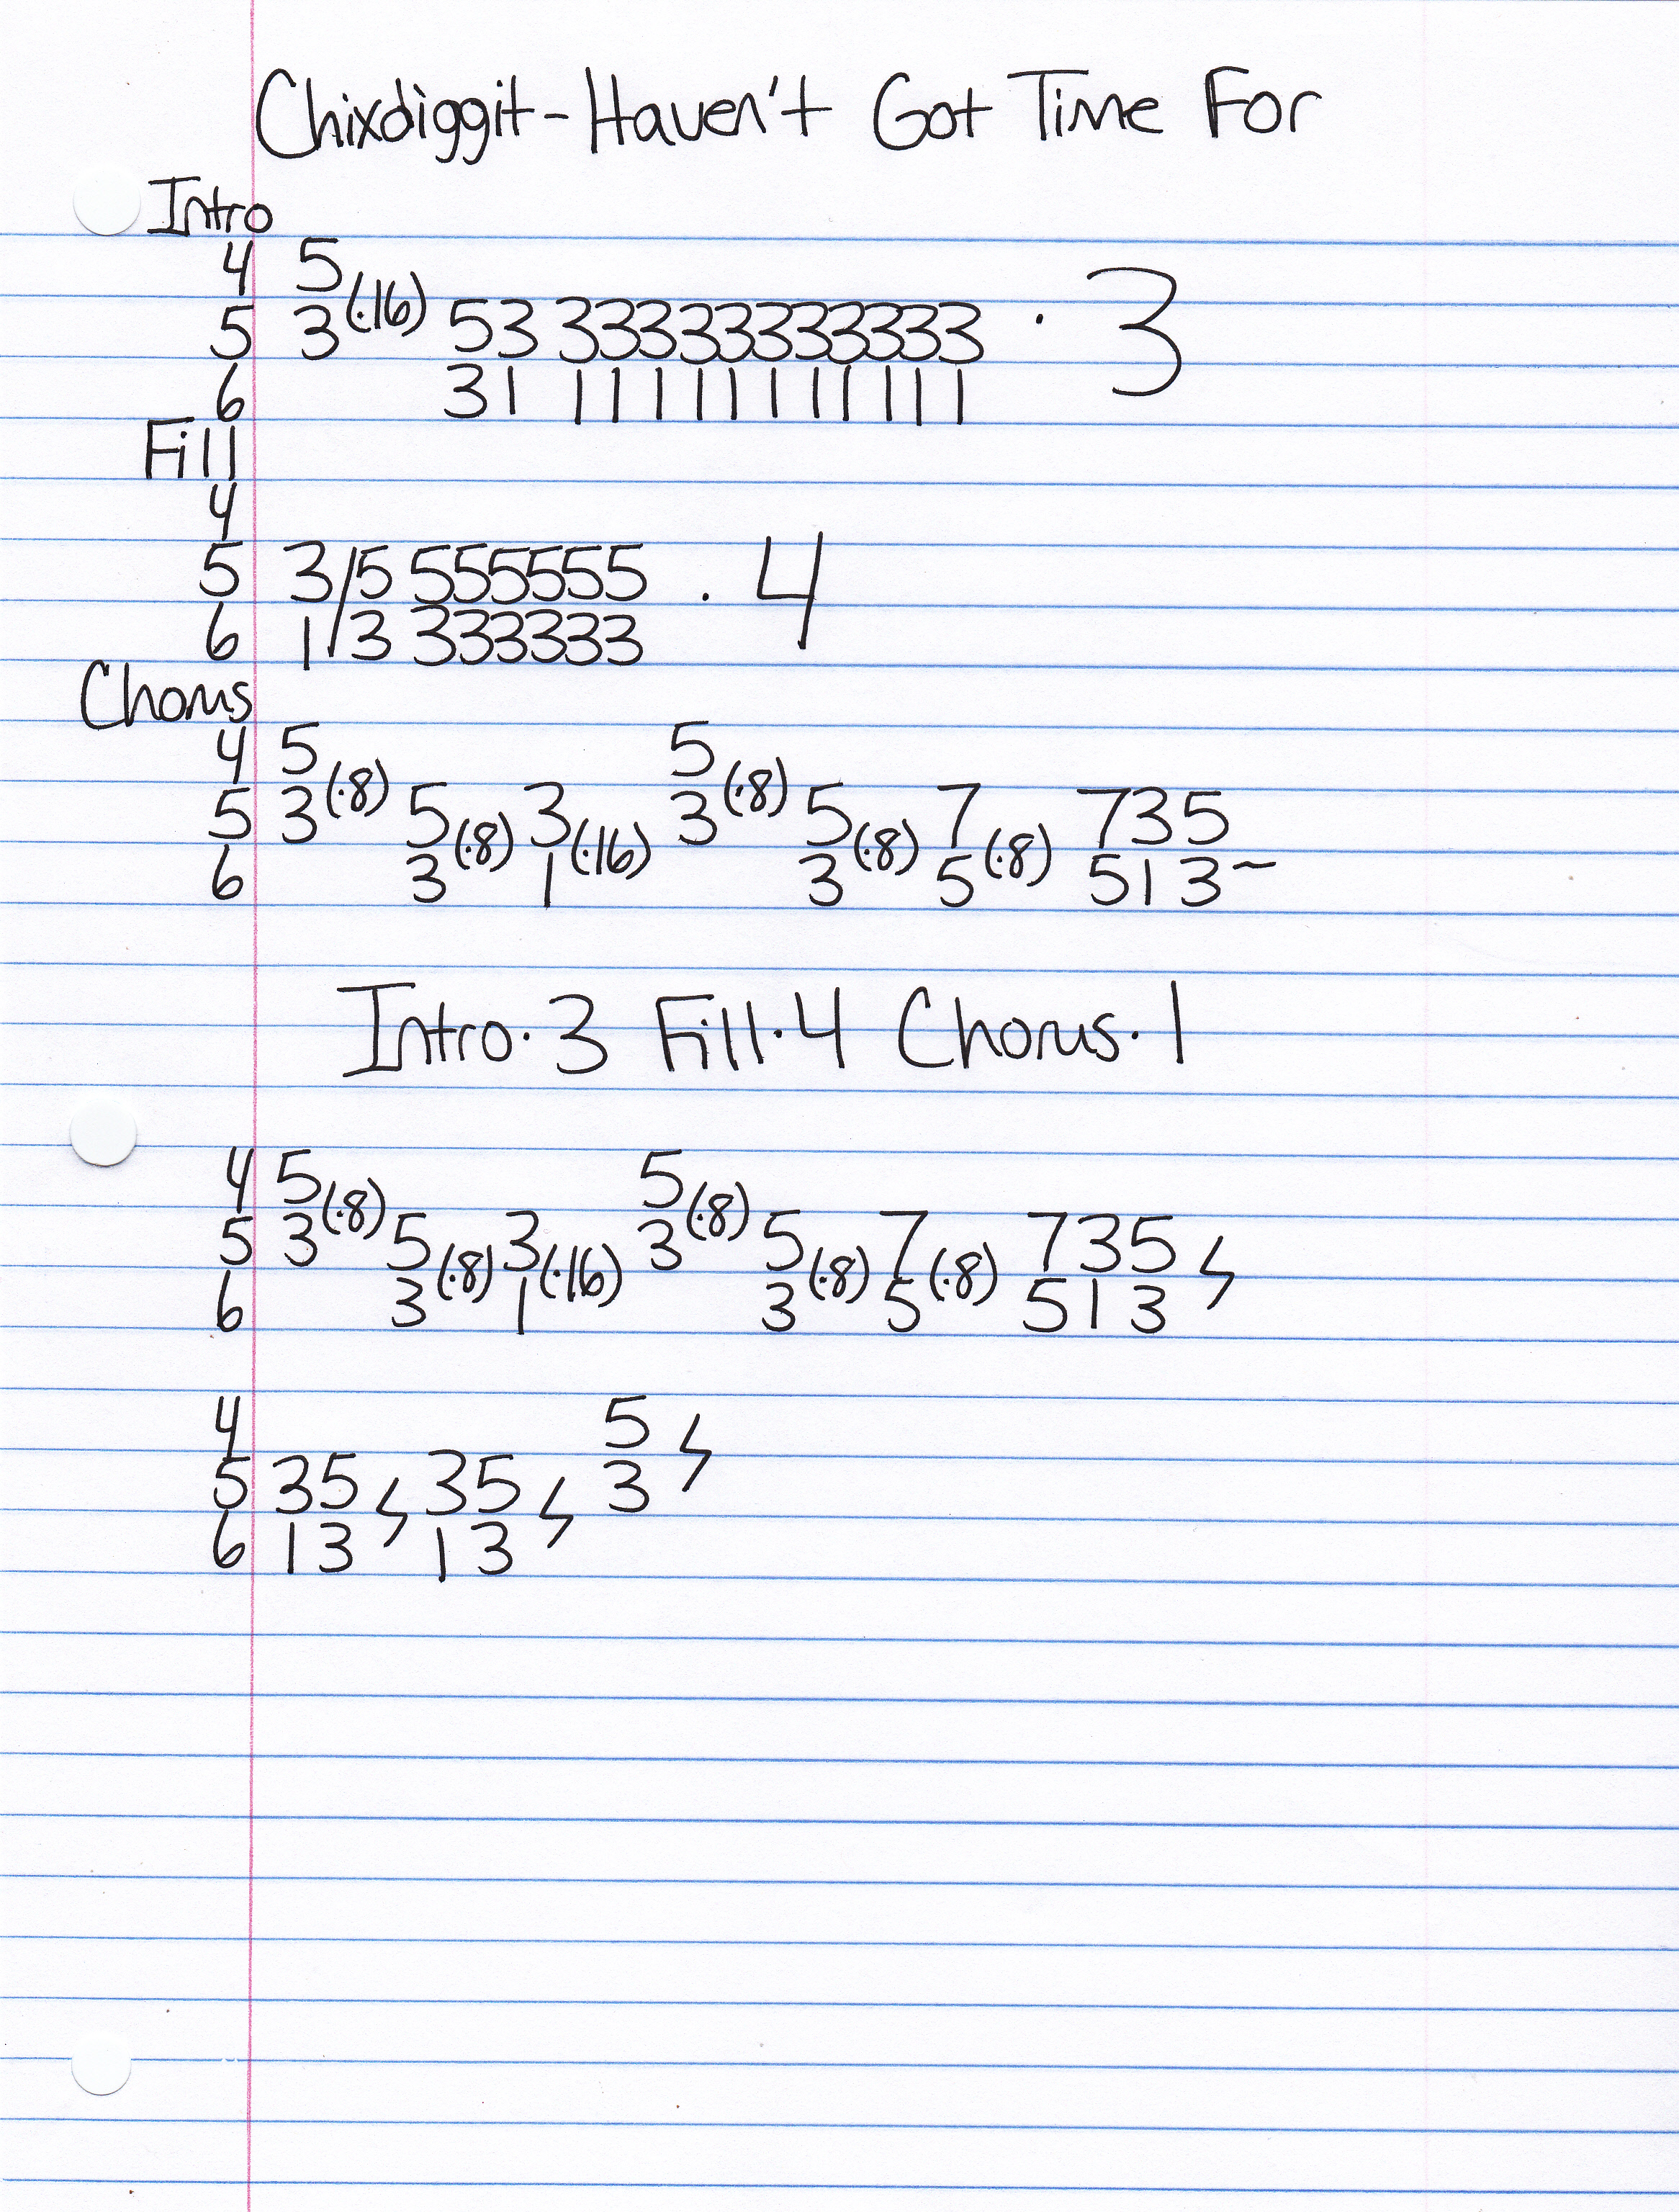 Chixdiggit - Haven't Got Time For
Intro
4 5
5 3 (·16) 53 33333333333 · 3
6 31 11111111111
Fill
4
5 3/5 555555 · 4
6 1/3 333333
Chorus
4 5 5
5 3 (·8) 5 3 3 (·8) 5 7 735
6 3 (·8) 1 (·16) 3 (·8) 5 (·8) 513~
Intro·3 Fill·4 Chorus·1
4 5 5
5 3 (·8) 5 3 3 (·8) 5 7 735
6 3 (·8) 1 (·16) 3 (·8) 5 (·8) 513
4 5
5 35 35 3
6 13 13